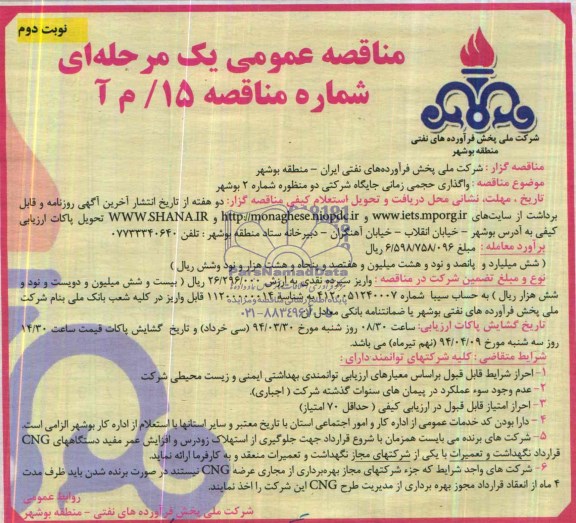 نوبت دوم
مناقصه عمومی یک مرحله‌ای
شماره مناقصه ۱۵/ م آ
شرکت ملی پخش فرآورده های نفتی
منطقه بوشهر
مناقصه گزار : شرکت ملی پخش فرآورده‌های نفتی ایران – منطقه بوشهر
موضوع مناقصه : واگذاری حجمی زمانی جایگاه شرکتی دو منظوره شماره ۲ بوشهر
تاریخ ، مهلت، نشانی محل دریافت و تحویل استعلام کیفی مناقصه گزار: دو هفته از تاریخ انتشار آخرین آگهی روزنامه و قابل
برداشت از سایت‌های www.iets.mporg.ir و http://monaghese.niopdc.ir و WWW.SHANA.IR تحویل پاکات ارزیابی
کیفی به آدرس بوشهر – خیابان انقلاب – خیابان آهنگران – دبیرخانه ستاد منطقه بوشهر : تلفن ۰۷۷۳۳۳۴۰۶۴۰
برآورد معامله : مبلغ ۶/۵۹۸/۷۵۸/۰۹۶ ریال
( شش میلیارد و پانصد و نود و هشت میلیون و هفتصد و پنجاه و هشت هزار و نود وشش ریال )
نوع و مبلغ تضمین شرکت در مناقصه : واریز سپرده نقدی به ارزش ۲۶/۲۹۶/۰۰۰ ریال ( بیست و شش میلیون و دویست و نود و
شش هزار ریال ) به حساب سیبا شماره ۴۱۲۰۰۵۱۲۴۰۰۰۷ به شناسه ۱۱۲۰۰۰۰۰۰۱۲ قابل واریز در کلیه شعب بانک ملی بنام شرکت
ملی پخش فرآورده های نفتی بوشهر یا ضمانتنامه بانکی معادل آن
تاریخ گشایش پاکات ارزیابی: ساعت ۰۸/۳۰ روز شنبه مورخ ۹۴/۰۳/۳۰ (سی خرداد) و تاریخ گشایش پاکات قیمت ساعت ۱۴/۳۰
روز سه شنبه مورخ ۹۴/۰۴/۰۹ (نهم تیرماه) می باشد.
شرایط متقاضی : کلیه شرکتهای توانمند دارای :
۱- احراز شرایط قابل قبول براساس معیارهای ارزیابی توانمندی بهداشتی ایمنی و زیست محیطی شرکت
۲- عدم وجود سوء عملکرد در پیمان های سنوات گذشته شرکت ( اجباری).
۳- احراز امتیاز قابل قبول در ارزیابی کیفی ( حداقل ۷۰ امتیاز)
۴- دارا بودن کد خدمات عمومی از اداره کار و امور اجتماعی استان با تاریخ معتبر و سایر استانها با استعلام از اداره کار بوشهر الزامی است.
۵- شرکت های برنده می بایست همزمان با شروع قرارداد جهت جلوگیری از استهلاک زودرس و افزایش عمر مفید دستگاههای CNG
قرارداد نگهداشت و تعمیرات با یکی از شرکتهای مجاز نگهداشت و تعمیرات منعقد و به کارفرما ارائه نماید.
۶- شرکت های واجد شرایط که جزء شرکتهای مجاز بهره‌برداری از مجاری عرضه CNG نیستند در صورت برنده شدن باید ظرف مدت
۴ ماه از انعقاد قرارداد مجوز بهره برداری از مدیریت طرح CNG این شرکت را اخذ نمایند.
روابط عمومی
شرکت ملی پخش فرآورده های نفتی – منطقه بوشهر
ParsNamadData
۰۲۱-۸۸۳۴۹۶۷۰